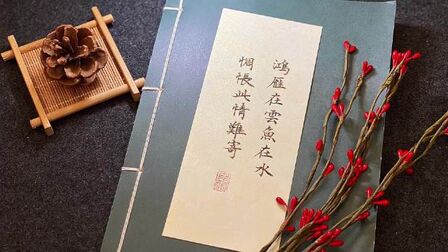 鴻雁在雲魚在水
惆悵此情難寄